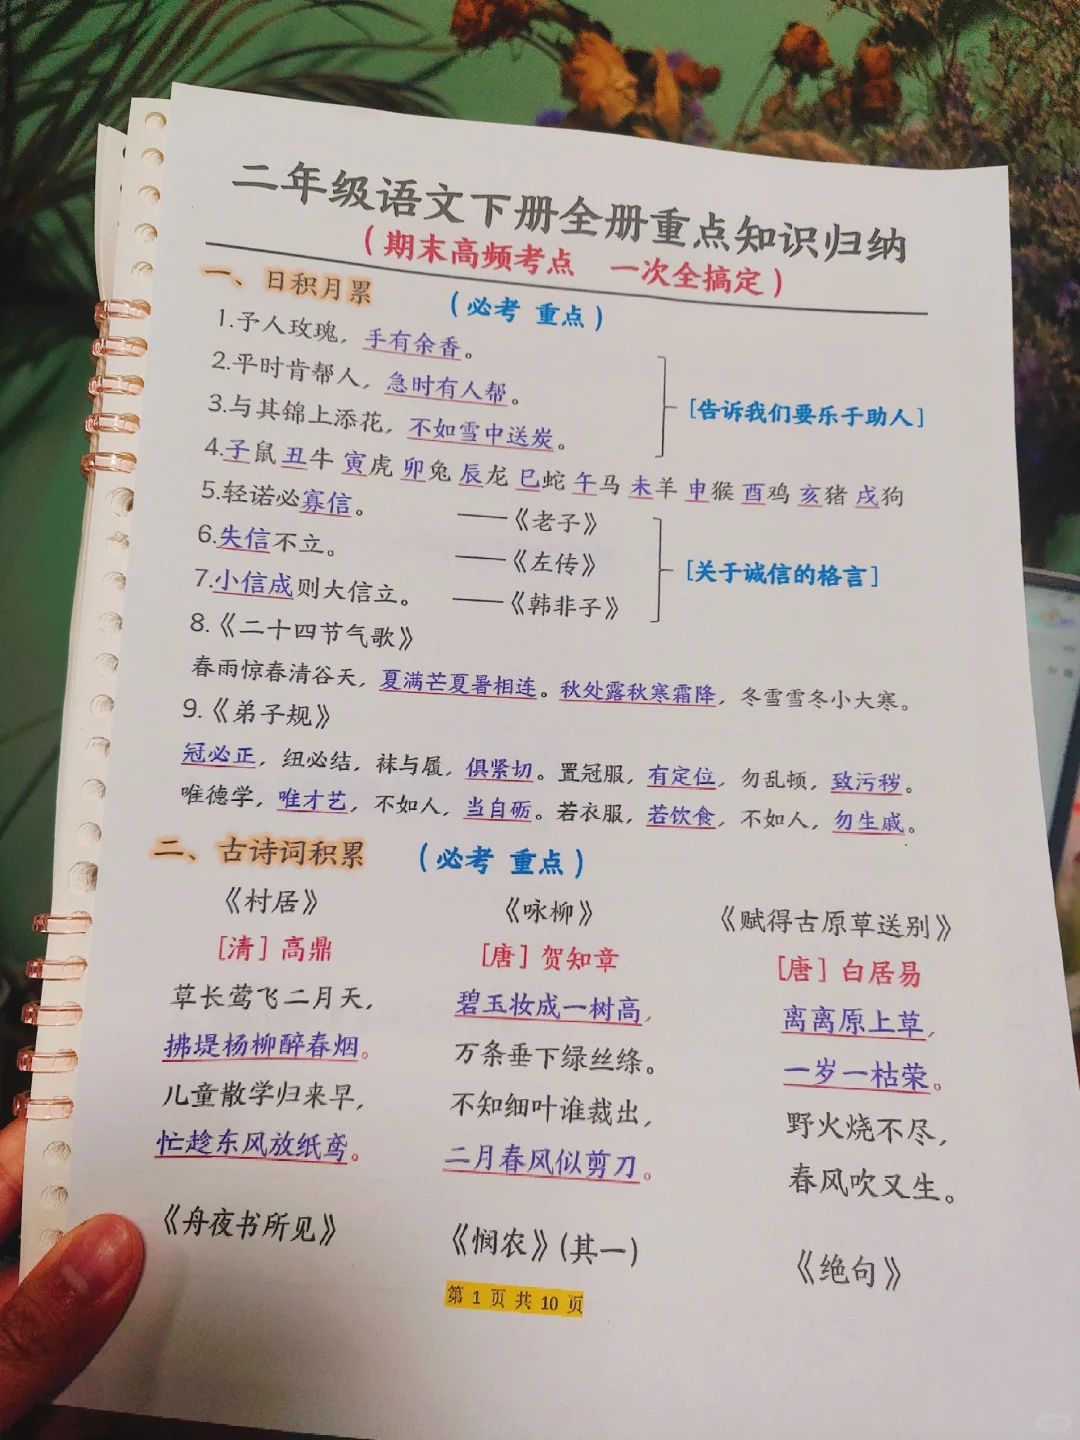 二年级语文下册全册重点知识归纳
(期末高频考点 一次全搞定)
一、日积月累 (必考 重点)
1.予人玫瑰，手有余香。
2.平时肯帮人，急时有人帮。
3.与其锦上添花，不如雪中送炭。
[告诉我们要乐于助人]
4.子鼠 丑牛 寅虎 卯兔 辰龙 巳蛇 午马 未羊 申猴 酉鸡 亥猪 戌狗
5.轻诺必寡信。 ——《老子》
6.失信不立。 ——《左传》
7.小信成则大信立。 ——《韩非子》
[关于诚信的格言]
8.《二十四节气歌》
春雨惊春清谷天，夏满芒夏暑相连。秋处露秋寒霜降，冬雪雪冬小大寒。
9.《弟子规》
冠必正，纽必结，袜与履，俱紧切。置冠服，有定位，勿乱顿，致污秽。
唯德学，唯才艺，不如人，当自砺。若衣服，若饮食，不如人，勿生戚。
二、古诗词积累 (必考 重点)
《村居》
[清] 高鼎
草长莺飞二月天，
拂堤杨柳醉春烟。
儿童散学归来早，
忙趁东风放纸鸢。
《咏柳》
[唐] 贺知章
碧玉妆成一树高，
万条垂下绿丝绦。
不知细叶谁裁出，
二月春风似剪刀。
《赋得古原草送别》
[唐] 白居易
离离原上草，
一岁一枯荣。
野火烧不尽，
春风吹又生。
《舟夜书所见》
《悯农》(其一)
《绝句》
第 1 页 共 10 页